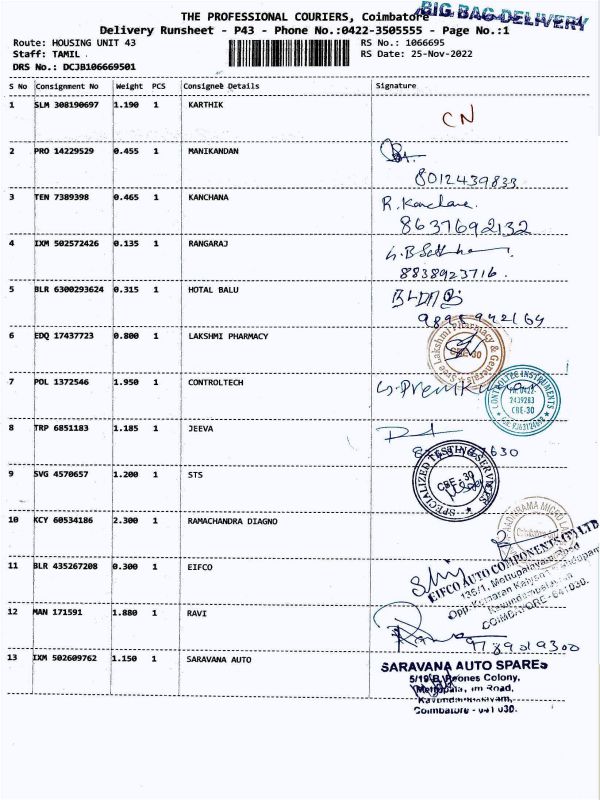 THE PROFESSIONAL COURIERS, Coimbatore
BIG BAG DELIVERY
Delivery Runsheet - P43 - Phone No.:0422-3505555 - Page No.:1
Route: HOUSING UNIT 43
RS No.: 1066695
Staff: TAMIL
RS Date: 25-Nov-2022
DRS No.: DCJB106669501
S No Consignment No Weight PCS Consignee Details Signature
1 SLM 308190697 1.190 1 KARTHIK
CN
2 PRO 14229529 0.455 1 MANIKANDAN
8012439833
3 TEN 7389398 0.465 1 KANCHANA R. Kanchana.
8637692132
4 IXM 502572426 0.135 1 RANGARAJ
8838923716.
5 BLR 6300293624 0.315 1 HOTAL BALU
6 EDQ 17437723 0.800 1 LAKSHMI PHARMACY
Sree Lakshmi Pharmacy & Generals
CBE-30
7 POL 1372546 1.950 1 CONTROLTECH
CONTROLTEC INSTRUMENTS
PH:0422-
2439283
CBE-30
8 TRP 6851183 1.185 1 JEEVA
9 SVG 4570657 1.200 1 STS
SPECIALIZED TESTING SERVICES
CBE - 30
10 KCY 60534186 2.300 1 RAMACHANDRA DIAGNO
11 BLR 435267208 0.300 1 EIFCO
EIFCO AUTO COMPONENTS (P) LTD
136/1, Mettupalayam Road
Opp. Kumaran Kalyana Mandapam
Kavundampalayam
COIMBATORE - 641 030.
12 MAN 171591 1.880 1 RAVI
9789019300
13 IXM 502609762 1.150 1 SARAVANA AUTO
SARAVANA AUTO SPARES
Colony,
Road,
Kavundampalayam,
Coimbatore - 641 030.